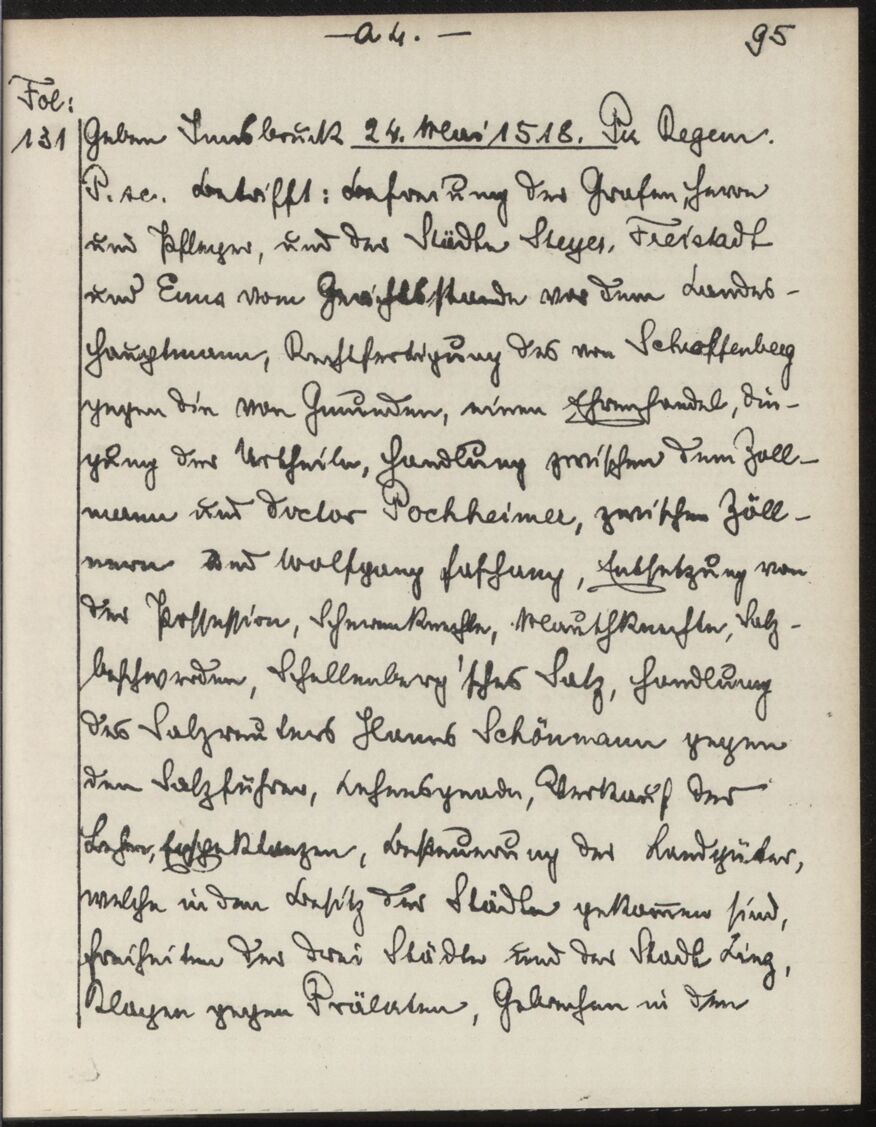 — A 4. — 95
Fol:
131 Geben Innsbruck 24. Mai 1518. Per Regem.
P. sc. Betrifft: Befreiung der Grafen, Herrn
und Pfleger, und der Städte Steyer, Freistadt
und Enns vom Gerichtsstande vor dem Landes-
hauptmann, Rechtfertigung des von Scherffenberg
gegen die von Gmunden, einen Ehrenhandel, Din-
gung der Urtheile, Handlung zwischen dem Zoll-
mann und Doctor Pochheimer, zwischen Zöll-
nern und Wolfgang Faschang, Entsetzung von
der Possession, Scherenknechte, Mauthknechte, Salz-
beschwerden, Schellenberg'sches Salz, Handlung
des Salzreuters Hanns Schönmann gegen
den Salzführer, Lehensgnade, Verkauf der
Lehen, Expektanzen, Besteuerung der Landgüter,
welche in den Besitz der Städte gekommen sind,
Freiheiten der drei Städte und der Stadt Linz,
Klagen gegen Prälaten, Gebrechen in den